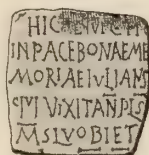 HIC
INPACEBONAEME
MORIAEIVLIANS
VIXITANPLS
MSLVOBIET